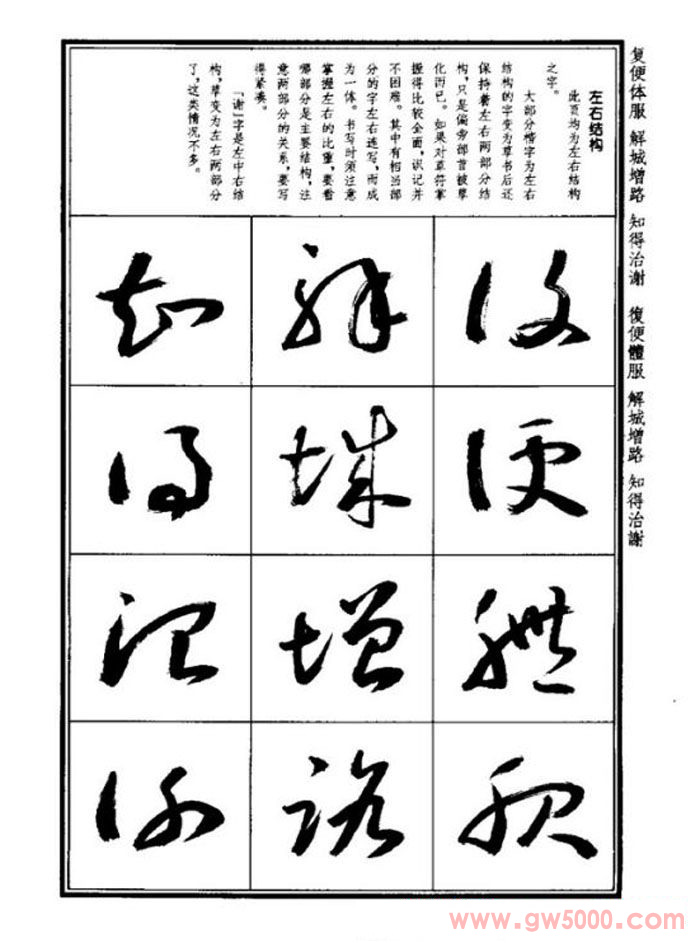 复便体服 解城增路 知得治谢 復便體服 解城增路 知得治謝
左右结构
此页均为左右结构
之字。
大部分楷字为左右
结构的字变为草书后还
保持着左右两部分结
构，只是偏旁部首被草
化而已。如果对草符掌
握得比较全面，识记并
不困难。其中有相当部
分的字左右连写，而成
为一体。书写时须注意
掌握左右的比重，要看
哪部分是主要结构，注
意两部分的关系，要写
得紧凑。
「谢」字是左中右结
构，草变为左右两部分
了，这类情况不多。
復便體服
解城增路
知得治謝
www.gw5000.com